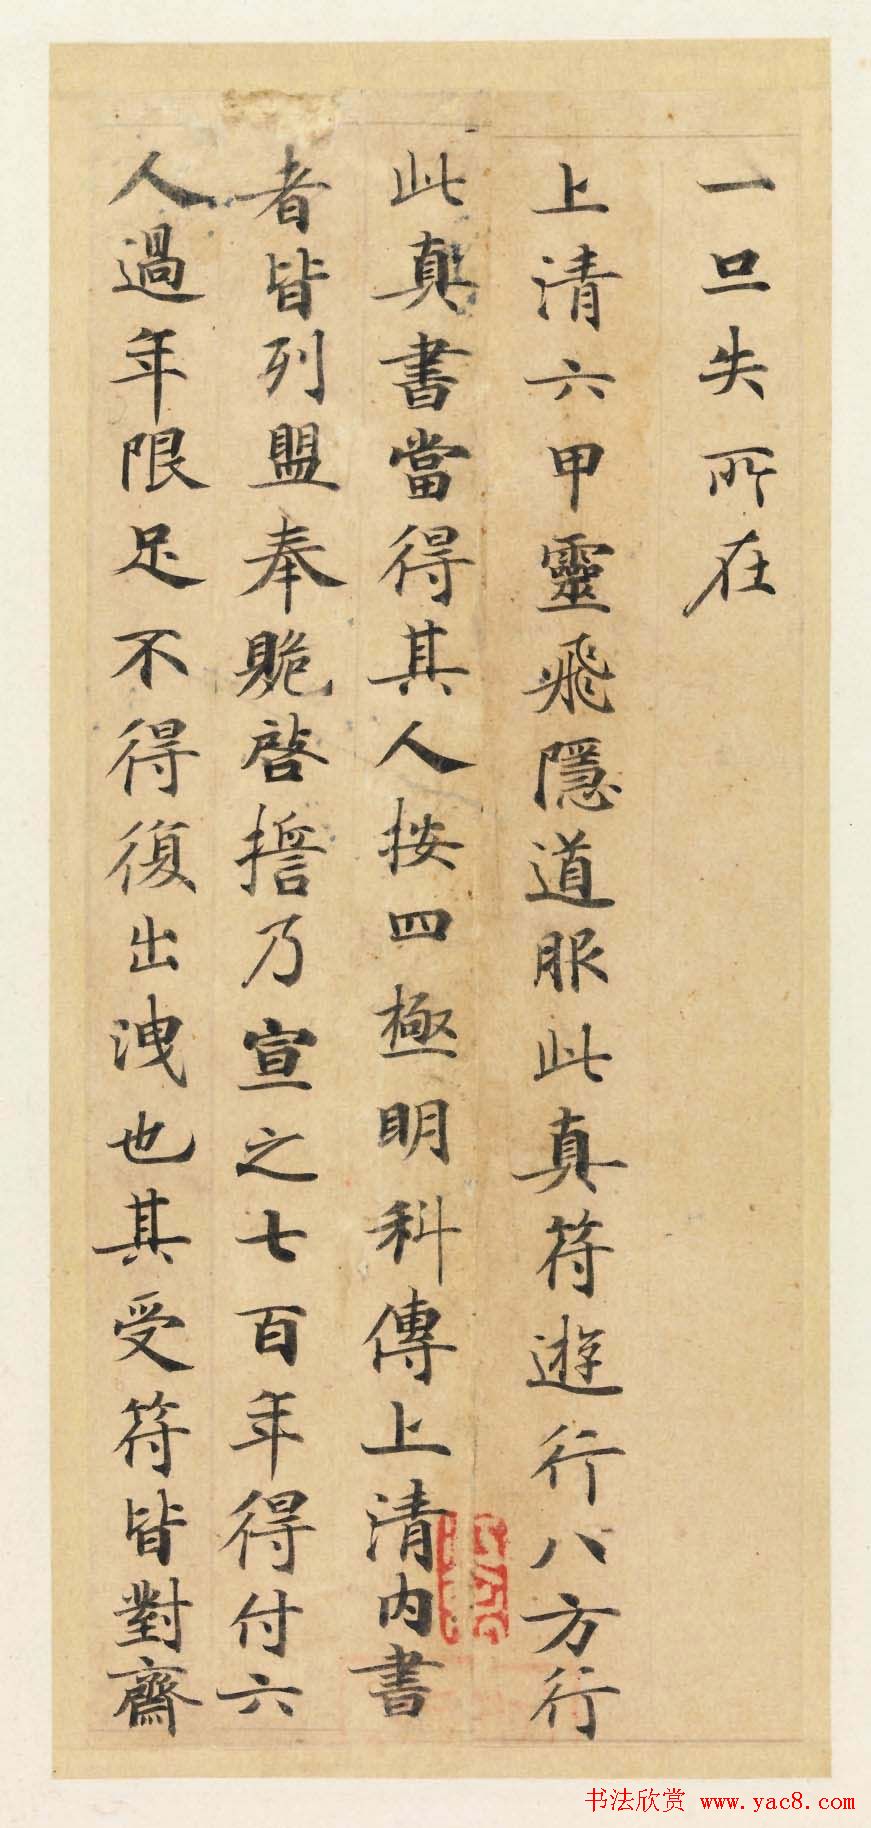 一旦失所在
上清六甲靈飛隱道服此真符遊行八方行
此真書當得其人按四極明科傳上清內書
者皆列盟奉貺啓誓乃宣之七百年得付六
人過年限足不得復出洩也其受符皆對齋
书法欣赏 www.yac8.com